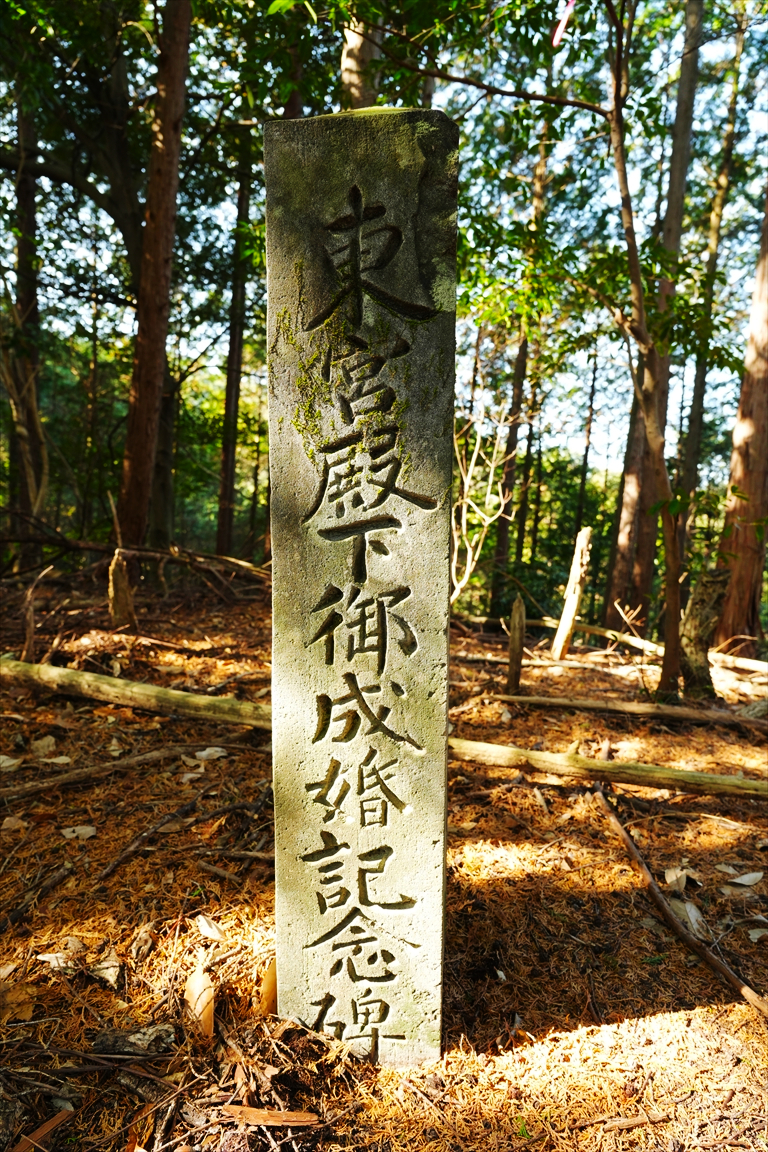 東宮殿下御成婚記念碑